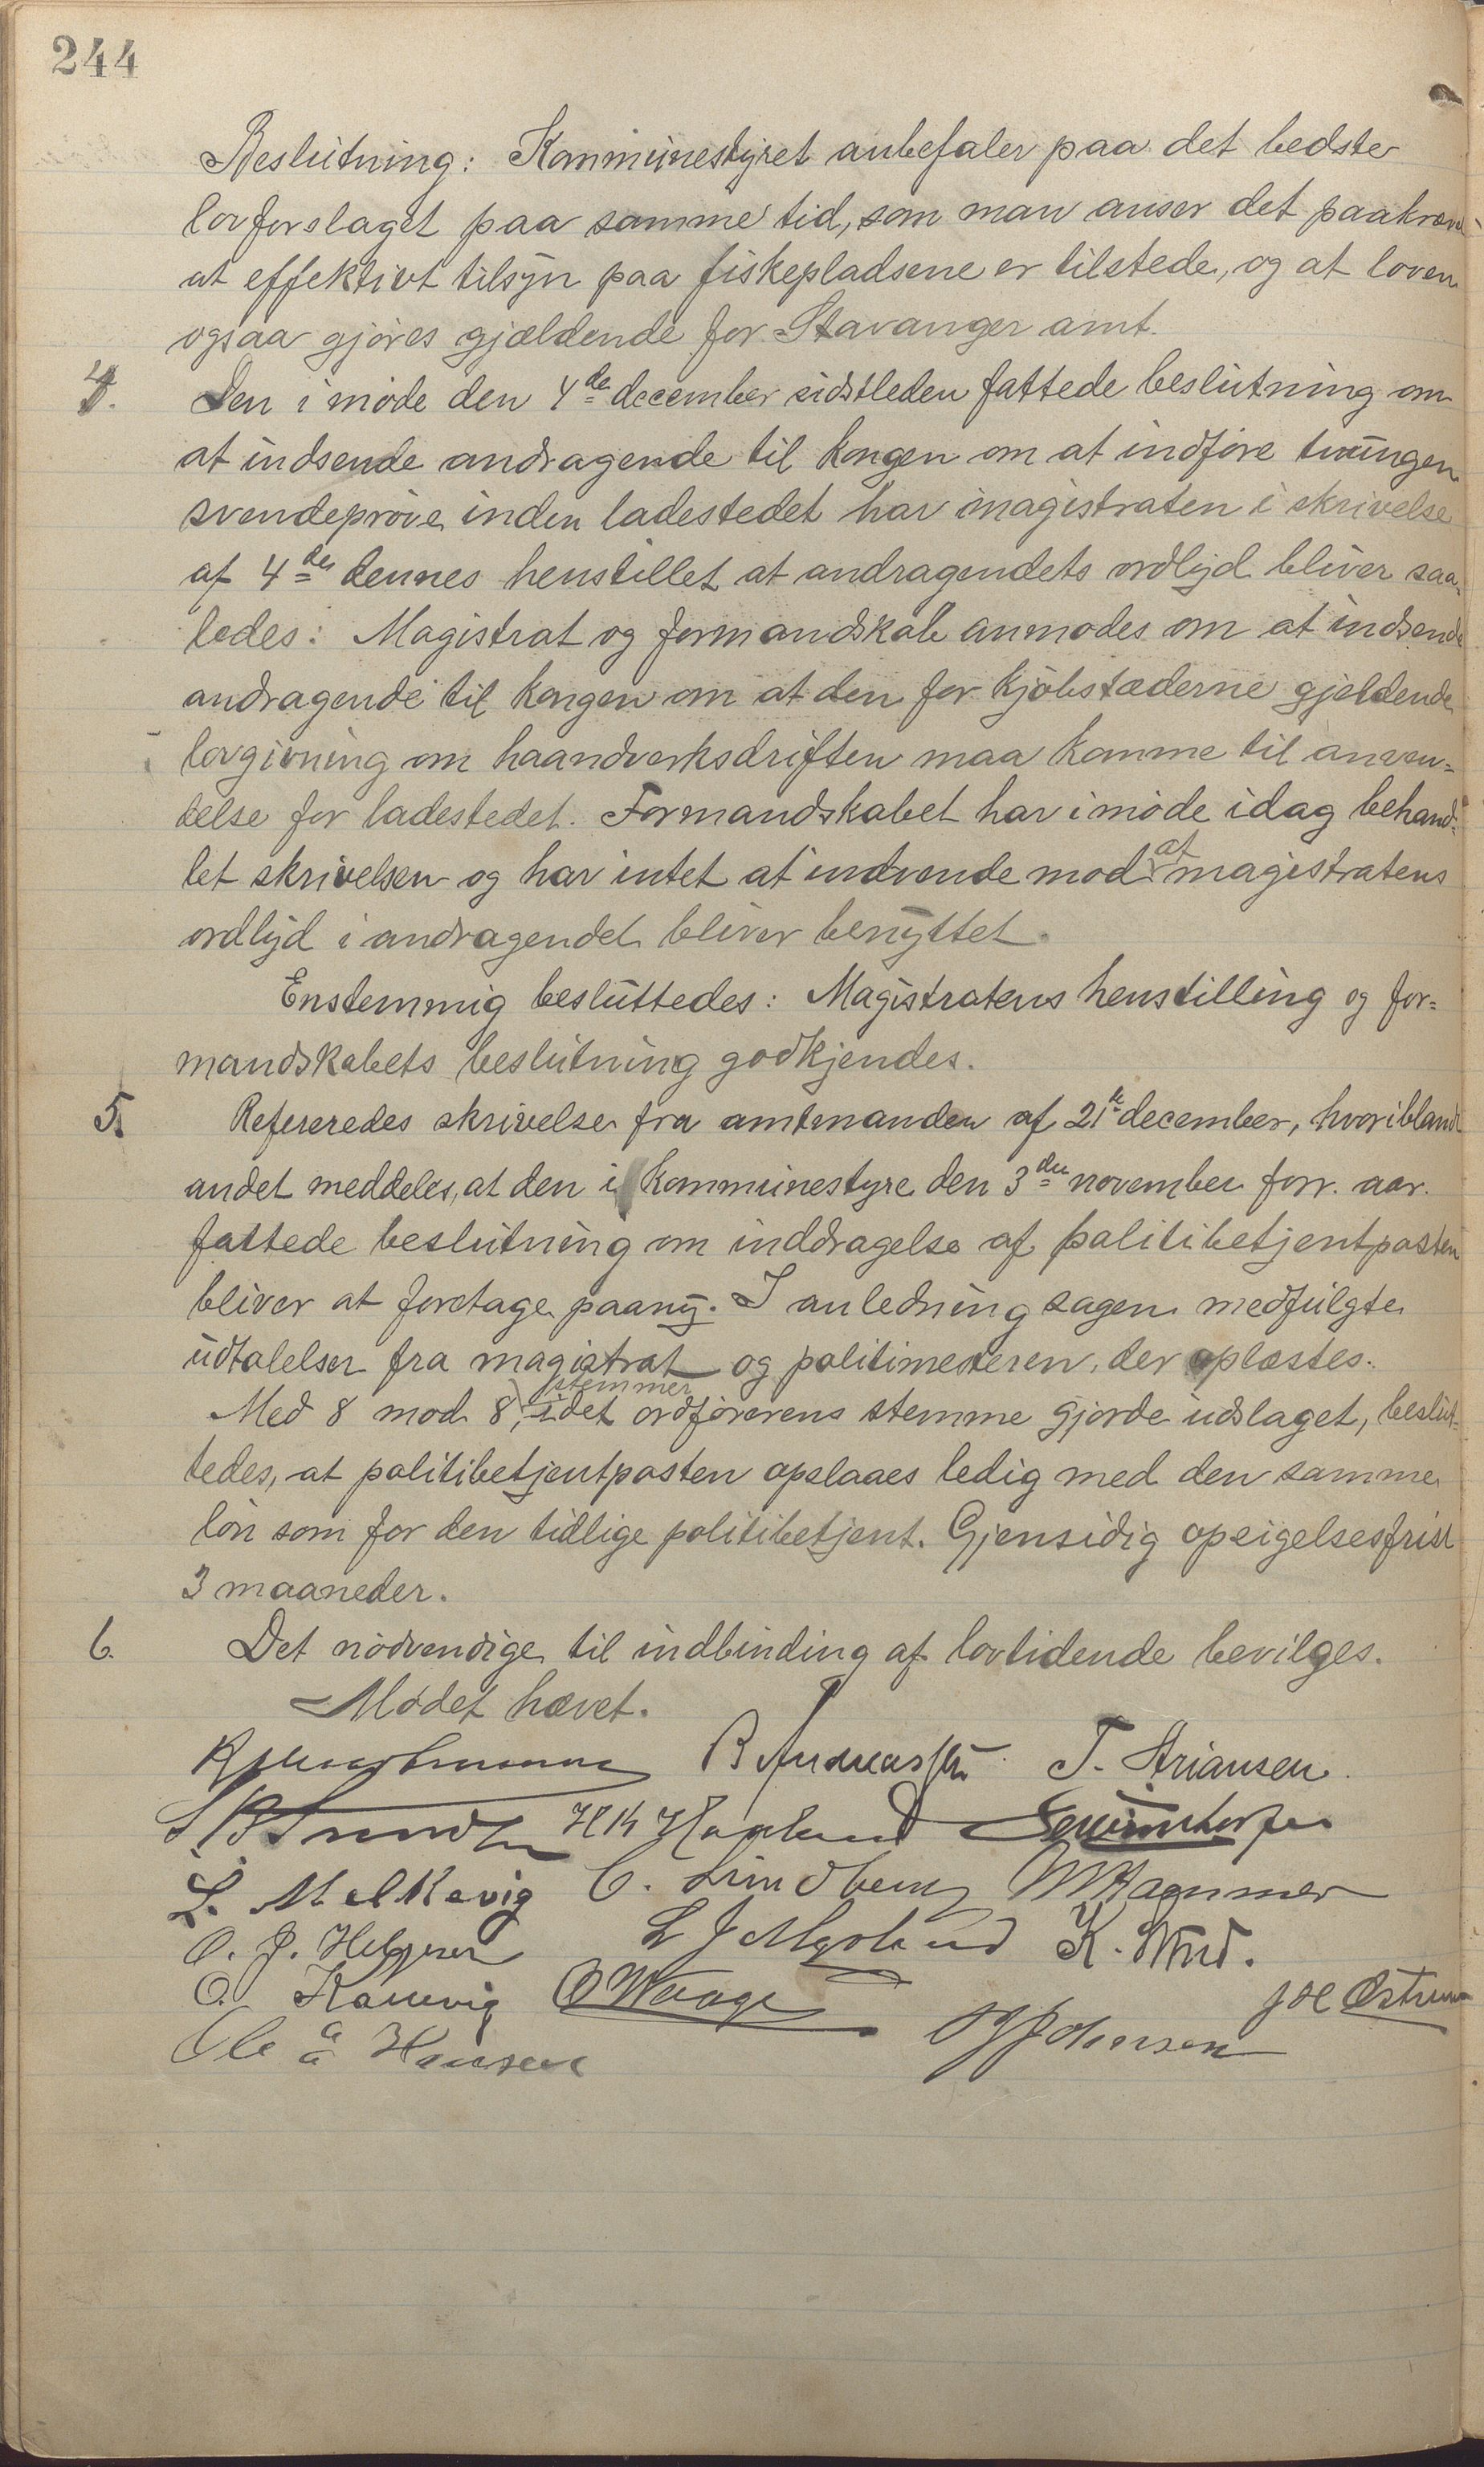 244
Beslutning: Kommunestyret anbefaler paa det bedste
lovforslaget paa samme tid, som man anser det paakræv-
at effektivt tilsyn paa fiskepladsene er tilstede, og at loven
ogsaa gjøres gjældende for Stavanger amt.
4. Den i møde den 4de december sidstleden fattede beslutning om
at indsende andragende til kongen om at indføre tvungen
svendeprøve inden ladestedet har magistraten i skrivelse
af 4de dennes henstillet at andragendets ordlyd bliver saa-
ledes: Magistrat og formandskab anmodes om at indsende
andragende til kongen om at den for kjøbstæderne gjeldende
lovgivning om haandverksdriften maa komme til anven-
delse for ladestedet. Formandskabet har i møde idag behand-
let skrivelsen og har intet at indvende mod at magistratens
ordlyd i andragendet bliver benyttet.
Enstemmig besluttedes: Magistratens henstilling og for-
mandskabets beslutning godkjendes.
5. Refereredes skrivelse fra amtmanden af 21de december, hvori bland
andet meddeles, at den i kommunestyre den 3die november forr. aar.
fattede beslutning om inddragelse af politibetjentposten
bliver at foretage paany. I anledning sagen medfulgte
udtalelser fra magistrat og politimesteren, der oplæstes.
Med 8 mod 8 stemmer, idet ordførerens stemme gjorde udslaget, beslut-
tedes, at politibetjentposten opslaaes ledig med den samme
løn som for den tidlige politibetjent. Gjensidig opsigelsesfrist
3 maaneder.
6. Det nødvendige til indbinding af lovtidende bevilges.
Mødet hævet.
B Andreassen T. Ariansen
H K Hapland
L. Melkevig C. Lindberg M Hammer
O. J. Helgesen L J Myrland K. Wrid.
O. Kallevig O Waage J H Østrem
Ole A Hansen O J Johnsen